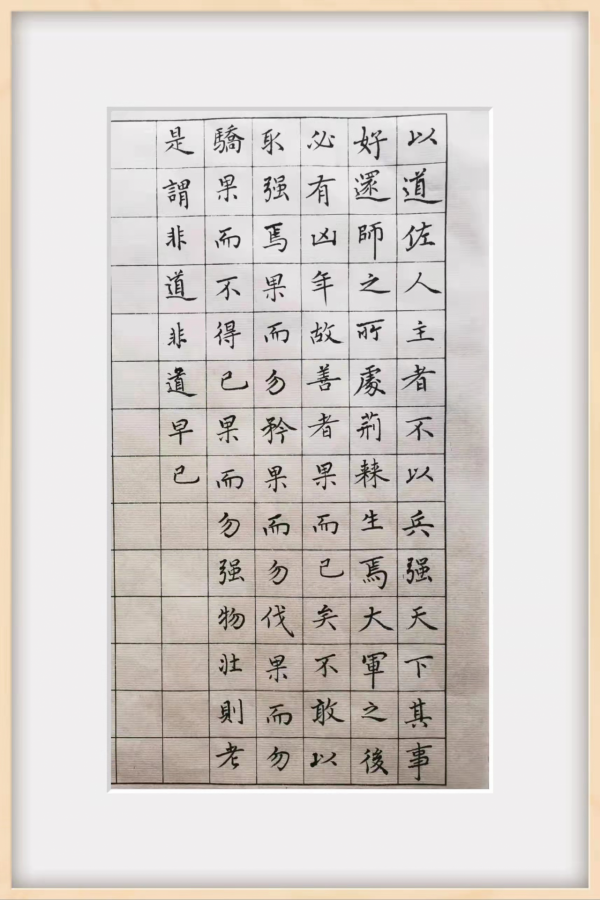 以道佐人主者不以兵强天下其事
好還師之所處荊棘生焉大軍之後
必有凶年故善者果而已矣不敢以
取强焉果而勿矜果而勿伐果而勿
驕果而不得已果而勿强物壯則老
是謂非道非道早已